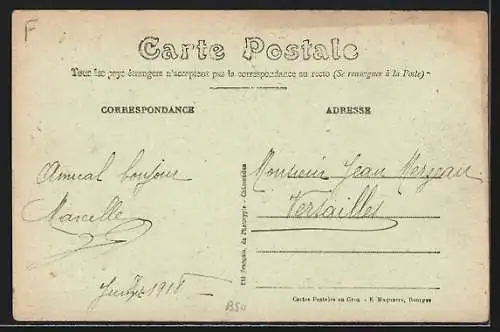 F
Carte Postale
Tous les pays étrangers n'acceptent pas la correspondance au recto (Se renseigner à la Poste)
CORRESPONDANCE
ADRESSE
Amical bonjour
Marcelle
Monsieur Jean Mergeau
Versailles
1918
B50
Eté Français. du Phototypie - Châteaudun
Cartes Postales en Gros - E. Maquaire, Bourges